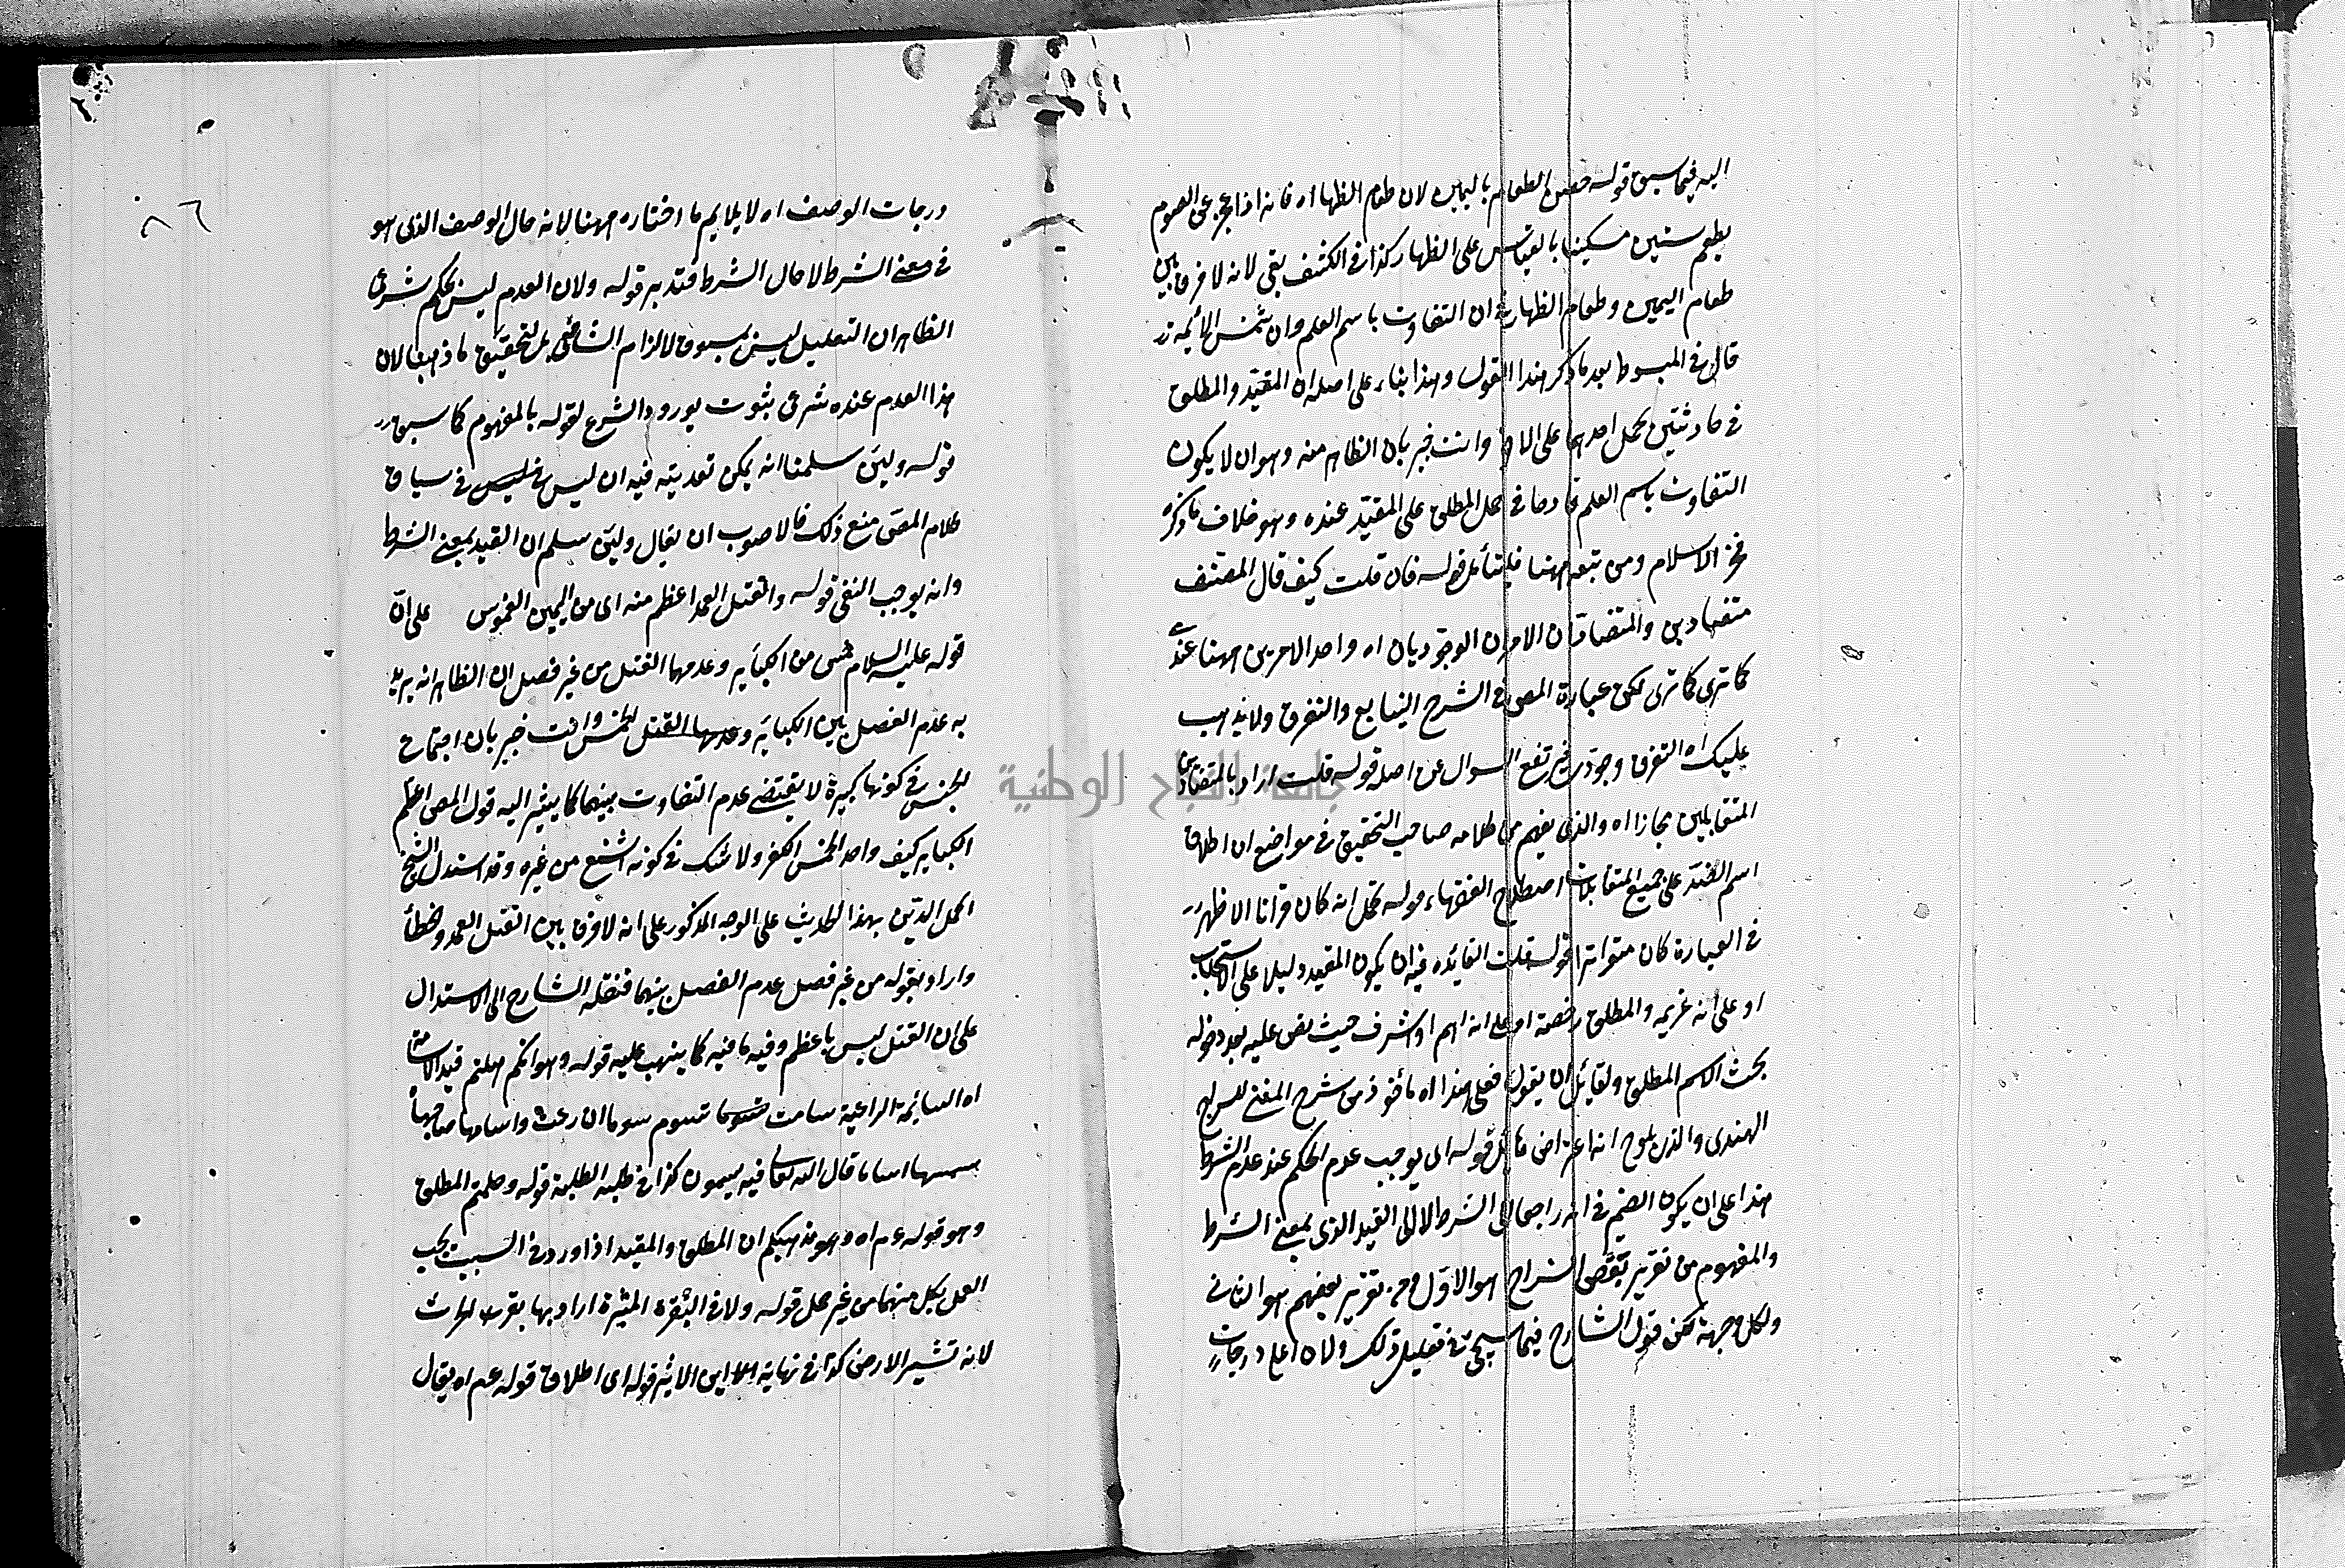 اليه فيما سبق قوله حصن الطعام باليمين لان طعام الظهار اه فانه اذا عجز عن الصوم
يطعم ستين مسكينا بالقياس على الظهار كذا في الكشف بقي لانه لا فرق بين
طعام اليمين وطعام الظهار في ان التفاوت باسم العلم وان شمس الائمه
قال في المبسوط بعد ما ذكر هذا القول وهذا بناء على اصله ان المقيد والمطلق
في حادثتين يحمل احدهما على الاخر وانت خبير بان الظاهر منه وهو ان لا يكون
التفاوت باسم العلم قادحا في حمل المطلق على المقيد عنده وهو خلاف ما ذكره
فخر الاسلام ومن تبعه ههنا فليتأمل قوله فان قلت كيف قال المصنف
متضادين والمتضادان الامران الوجوديان اه واحد الامرين ههنا عدمي
كما ترى كما ترى لكن عبارة المص في الشرح التتابع والتفرق ولا يذهب
عليك ان التفرق وجودي فيرتفع السوال عن اصله قوله قلت اراد بالمتضادين
المتقابلين مجازا اه والذي يفهم من كلام صاحب التحقيق في مواضع ان اطلاق
اسم الضد على جميع المتقابلات اصطلاح الفقهاء قوله يحمل انه كان قرانا الاظهر
في العبارة كان متواترا قوله قلت الفائده فيه ان يكون المقيد دليلا على الاستحباب
او على انه عزيمه والمطلق رخصة او على انه اهم او اشرف حيث نص عليه بعد دخوله
تحت الاسم المطلق ولقائل ان يقول فعلى هذا اه مأخوذ من شرح المغني للسراج
الهندي والذي يلوح انه اعتراض قائل قوله اي يوجب عدم الحكم عند عدم الشرط
هذا على ان يكون الضمير في انه راجعا الى الشرط لا الى القيد الذي بمعنى الشرط
والمفهوم من تقرير بعض الشراح هو الاول ومن تقرير بعضهم هو الثاني
ولكل وجهة لكن قول الشارح فيما سيجئ في تعليل ذلك ولان اعلى درجات
درجات الوصف اه لا يلايم ما اختاره ههنا لانه حال الوصف الذي هو
في معنى الشرط لا حال الشرط فتدبر قوله ولان العدم ليس بحكم شرعي
الظاهر ان التعليل ليس بمسوق لالزام الشافعي بل لتحقيق ما ذهبنا لان
هذا العدم عنده شرعي بثبوت يورود الشرع لقوله بالمفهوم كما سبق
قوله ولئن سلمنا انه يمكن تعديته فيه ان ليس في سياق
كلام المص منع ذلك فالاصوب ان يقال ولئن سلم ان القيد بمعنى الشرط
وانه يوجب النفي قوله والقتل العمد اعظم منه اي من اليمين الغموس على ان
قوله عليه السلام خمس من الكبائر وعد منها القتل من غير فصل ان الظاهر انه يريد
به عدم الفصل بين الكبائر وعد منها القتل الخمس وانت خبير بان اجتماع
الخمس في كونها كبيرة لا يقتضي عدم التفاوت بينهما كما يشير اليه قول المص اعظم
الكباير كيف واحد الخمس الكفر ولا شك في كونه اشنع من غيره وقد استدل الشيخ
اكمل الدين بهذا الحديث على الوجه المذكور على انه لا فرق بين القتل العمد والخطأ
واراد بقوله من غير فصل عدم الفصل بينهما فنقله الشارح الى الاستدلال
على ان القتل ليس باعظم وفيه ما فيه كما ينبه عليه قوله وهو انكم
اه السائمة الراعية سامت تسوم سوما ان رعت واسامها صاحبها
اسامة قال الله تعالى فيه تسيمون كذا في طلبة الطلبة قوله وحملتم المطلق
وهو قوله عم اه وهو مذهبكم ان المطلق والمقيد اذا ورد في السبب يجب
العمل بكل منهما من غير حمل قوله ولا في البقرة المثيرة اراد بها بقرة الحرث
لانه تثير الارض كذا في نهاية ابن الاثير قوله اي اطلاق قوله عم اه يقال
٨٦
جامعة النجاح الوطنية